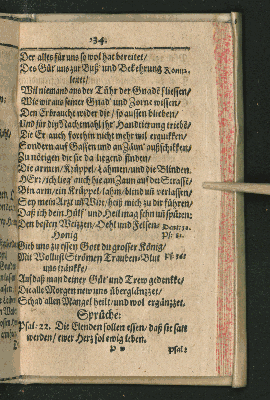 234.
Der alles für uns so wol hat bereitet/
Des Güt uns zur Buß und Bekehrung
leitet/
Wil niemand aus der Tühr der Gnade fliessen/
Wie wir aus seiner Gnad' und Zorne wissen/
Den Erbrauch wider die / so aussen blieben/
Und für die Nachtmahl ihr' Handtierung triebē/
Die Er auch forthin nicht mehr wil erquikken/
Sondern auf Gassen und an Zäun' außschikken/
Zu nötigen die sie da ligend finden/
Die armen/Krüppel/Lahmen/und die Blinden.
HErr/ich lieg' auch hie am Zaun auf der Strasse/
Bin arm/ein Krüppel/lahm/blind und verlassen/
Sey mein Arzt und Wirt/heiß mich zu dir führen/
Daß ich dein Hülf' und Heil mag sehn uñ spüren:
Den besten Weitzen/Oehl und Felsen
Honig
Gieb uns zu essen Gott du grosser König/
Mit Wollust Strömen Trauben-Blut
uns tränkke/
Auf daß man deiner Güt' und Trew gedenkke/
Die alle Morgen new uns überglänzzet/
Schad allen Mangel heilt/und wol ergänzzet.
Sprüche:
Psal. 22. Die Elenden sollen essen/ daß sie satt
werden/ ewer Herz sol ewig leben.
Psal: